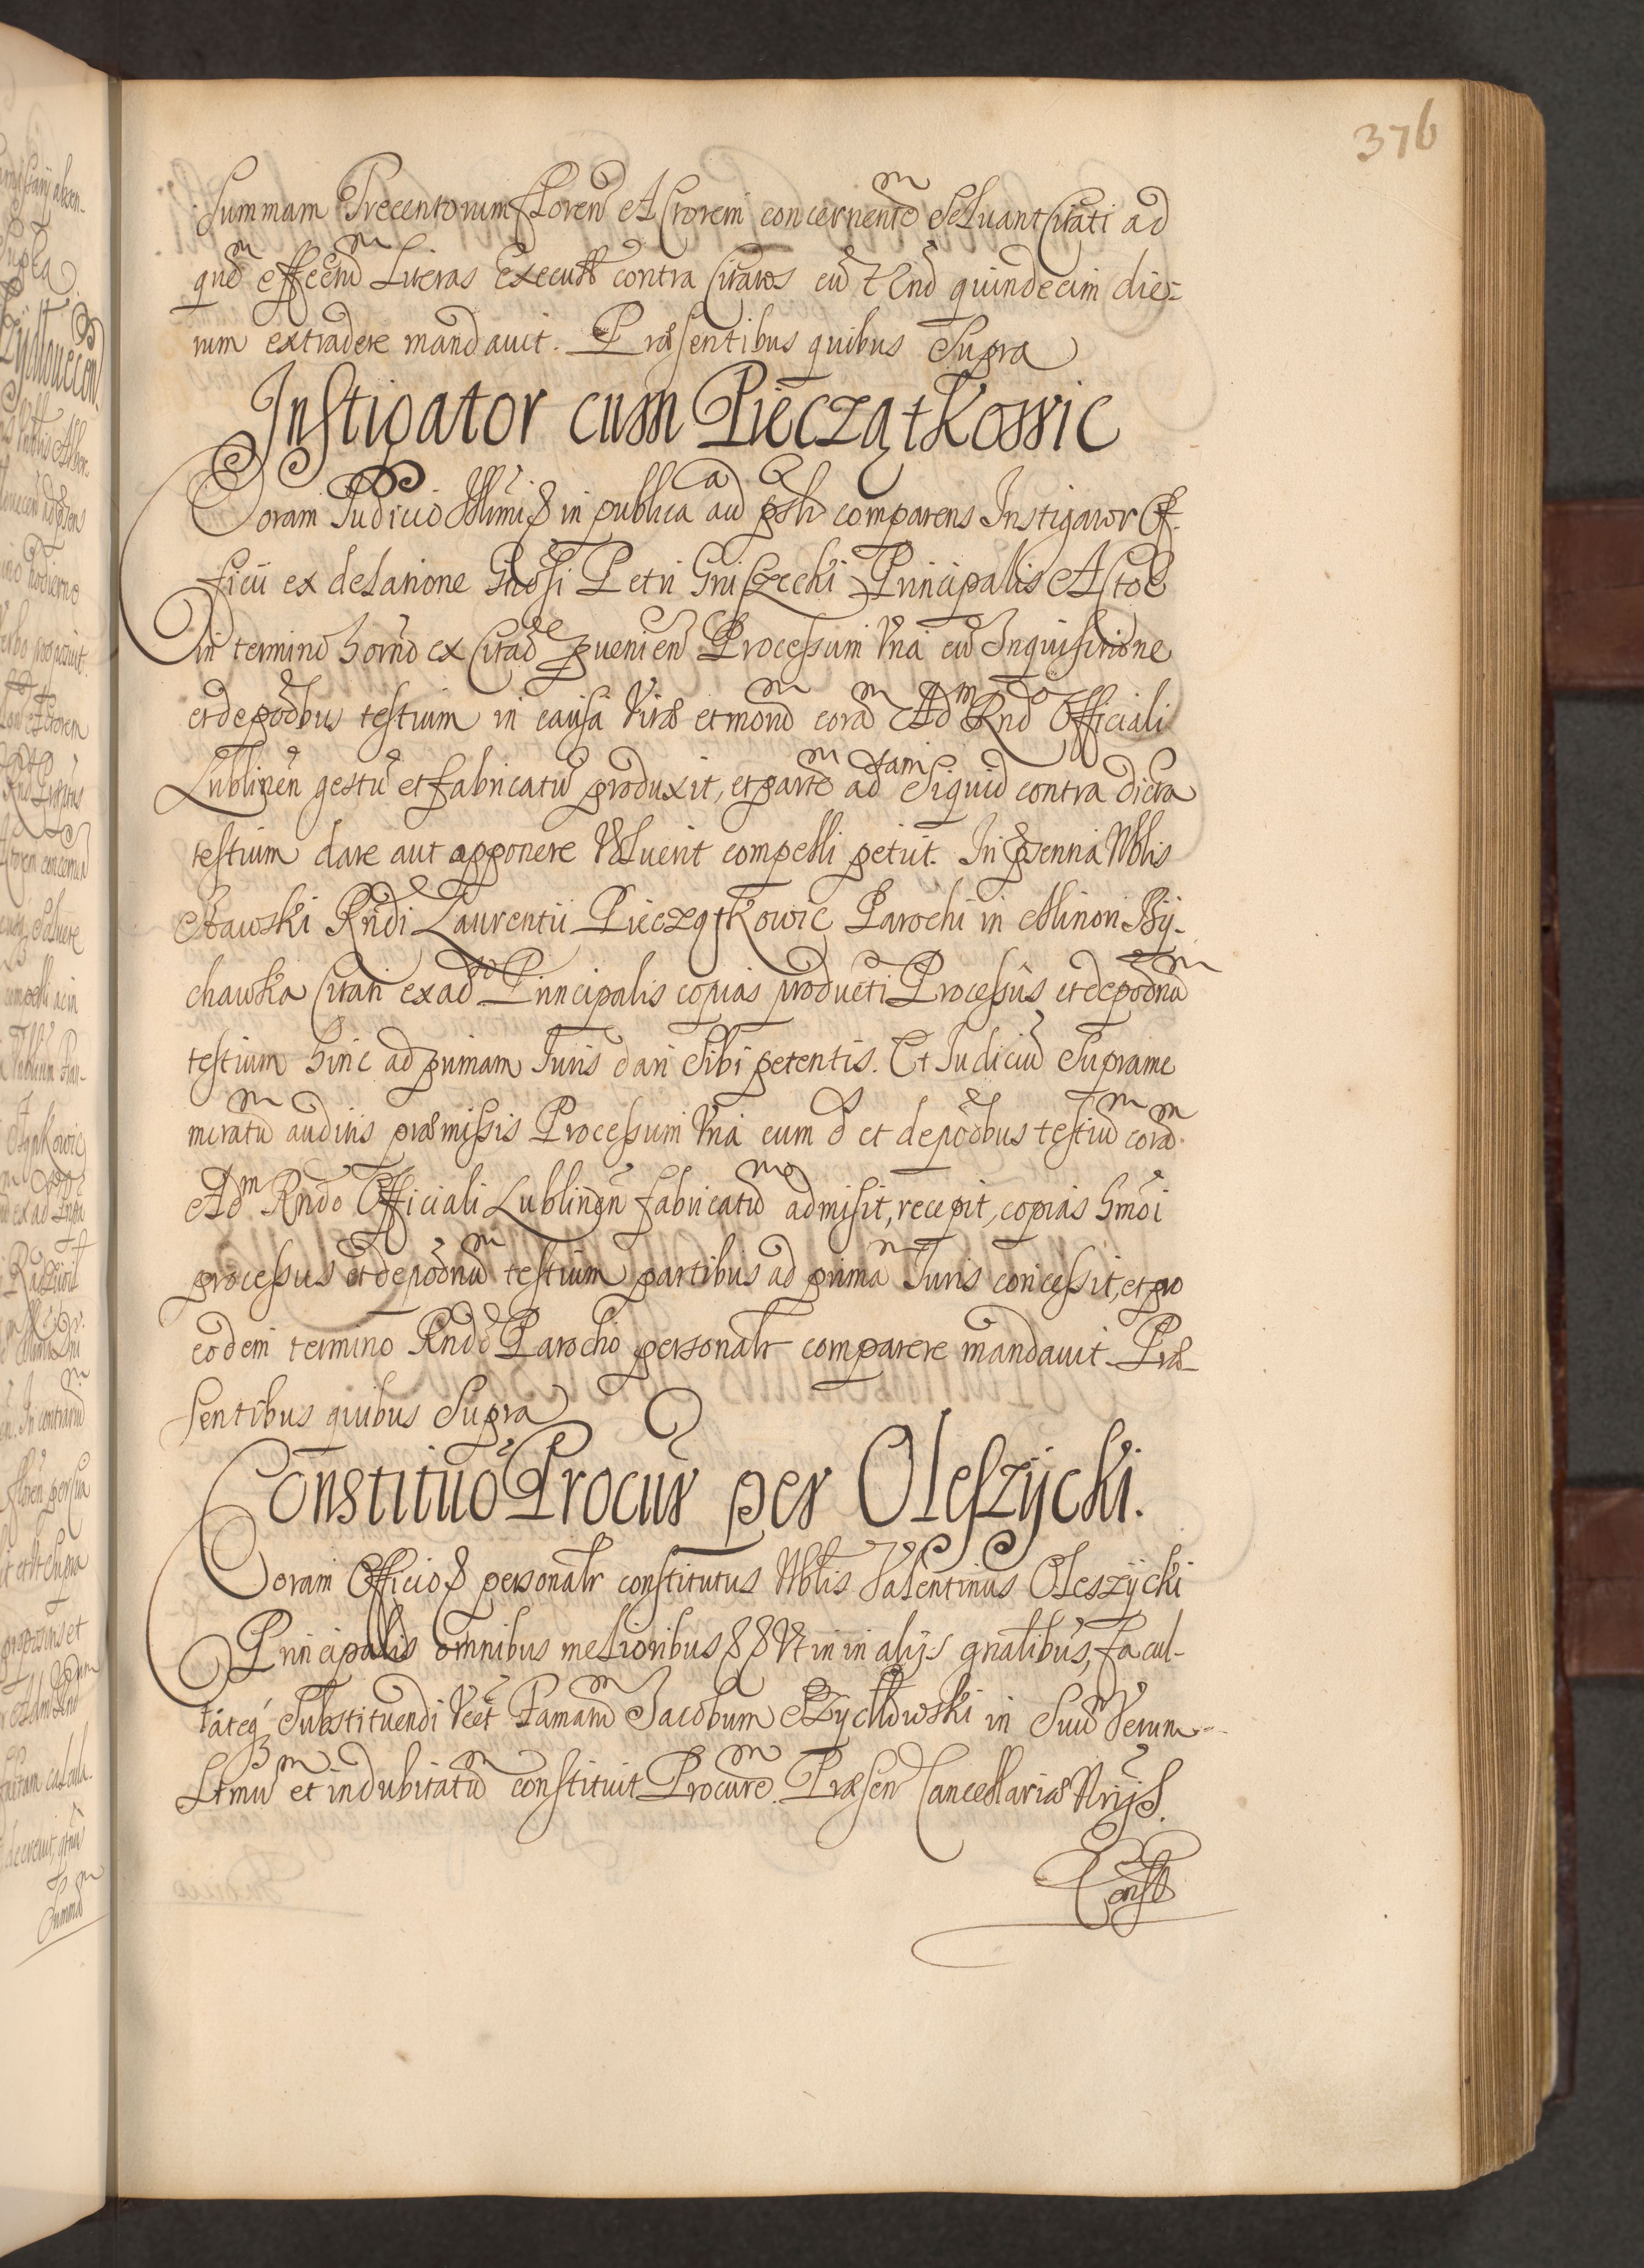 376
Summam Trecentorum Floren Actorem concernentem Solvant Citati ad
quem effectum Literas Executt contra Citatos cum t End quindecim die=
rum extradere mandavit. Præsentibus quibus Supra
Instigator cum Pieczątkowic
Coram Judicio Illimi S in publica aud psłr comparens Instigator Of-
ficii ex delatione Gnosi Petri Gniszecki Principalis Actor
In termino horno ex Citaone pvenien Processum Una cum Inquisitione
et depoõbus testium in causa Vitæ et morum coram Adm Rndo Officiali
Lublinen gestum et fabricatum produxit, et partem adtam Siquid contra dicta
testium dare aut apponere Voluerit compelli petiit. In psentia Nblis
Stawski Rndi Laurentii Pieczątkowic Parochi in Minori By-
chawka Citati ex adso Principalis copias producti Processus et depoõnum
testium hinc ad primam Juris dari Sibi petentis. Et Judicium Supranne
meratum auditis præmissis Processum Una cum d et depoõbus testium coram
Adm Rndo Officiali Lublinen fabricatum admisit, recepit, copias hmoi
processus et depoõnum testium partibus ad primam Juris concessit, et pro
eodem termino Rndo Parocho personalr comparere mandavit. Præ-
sentibus quibus Supra
Constituo Procur per Oleszycki.
Coram Officio S personalr constitutus Nblis Valentinus Oleszycki
Principalis omnibus melioribus S S Ut in in alijs gnalibus, facul-
tateq Substituendi Famatum Jacobum Szychowski in Suum Verum
Ltmum et indubitatum constituit Procurem. Præsen Cancellariæ Nrijs.
Const